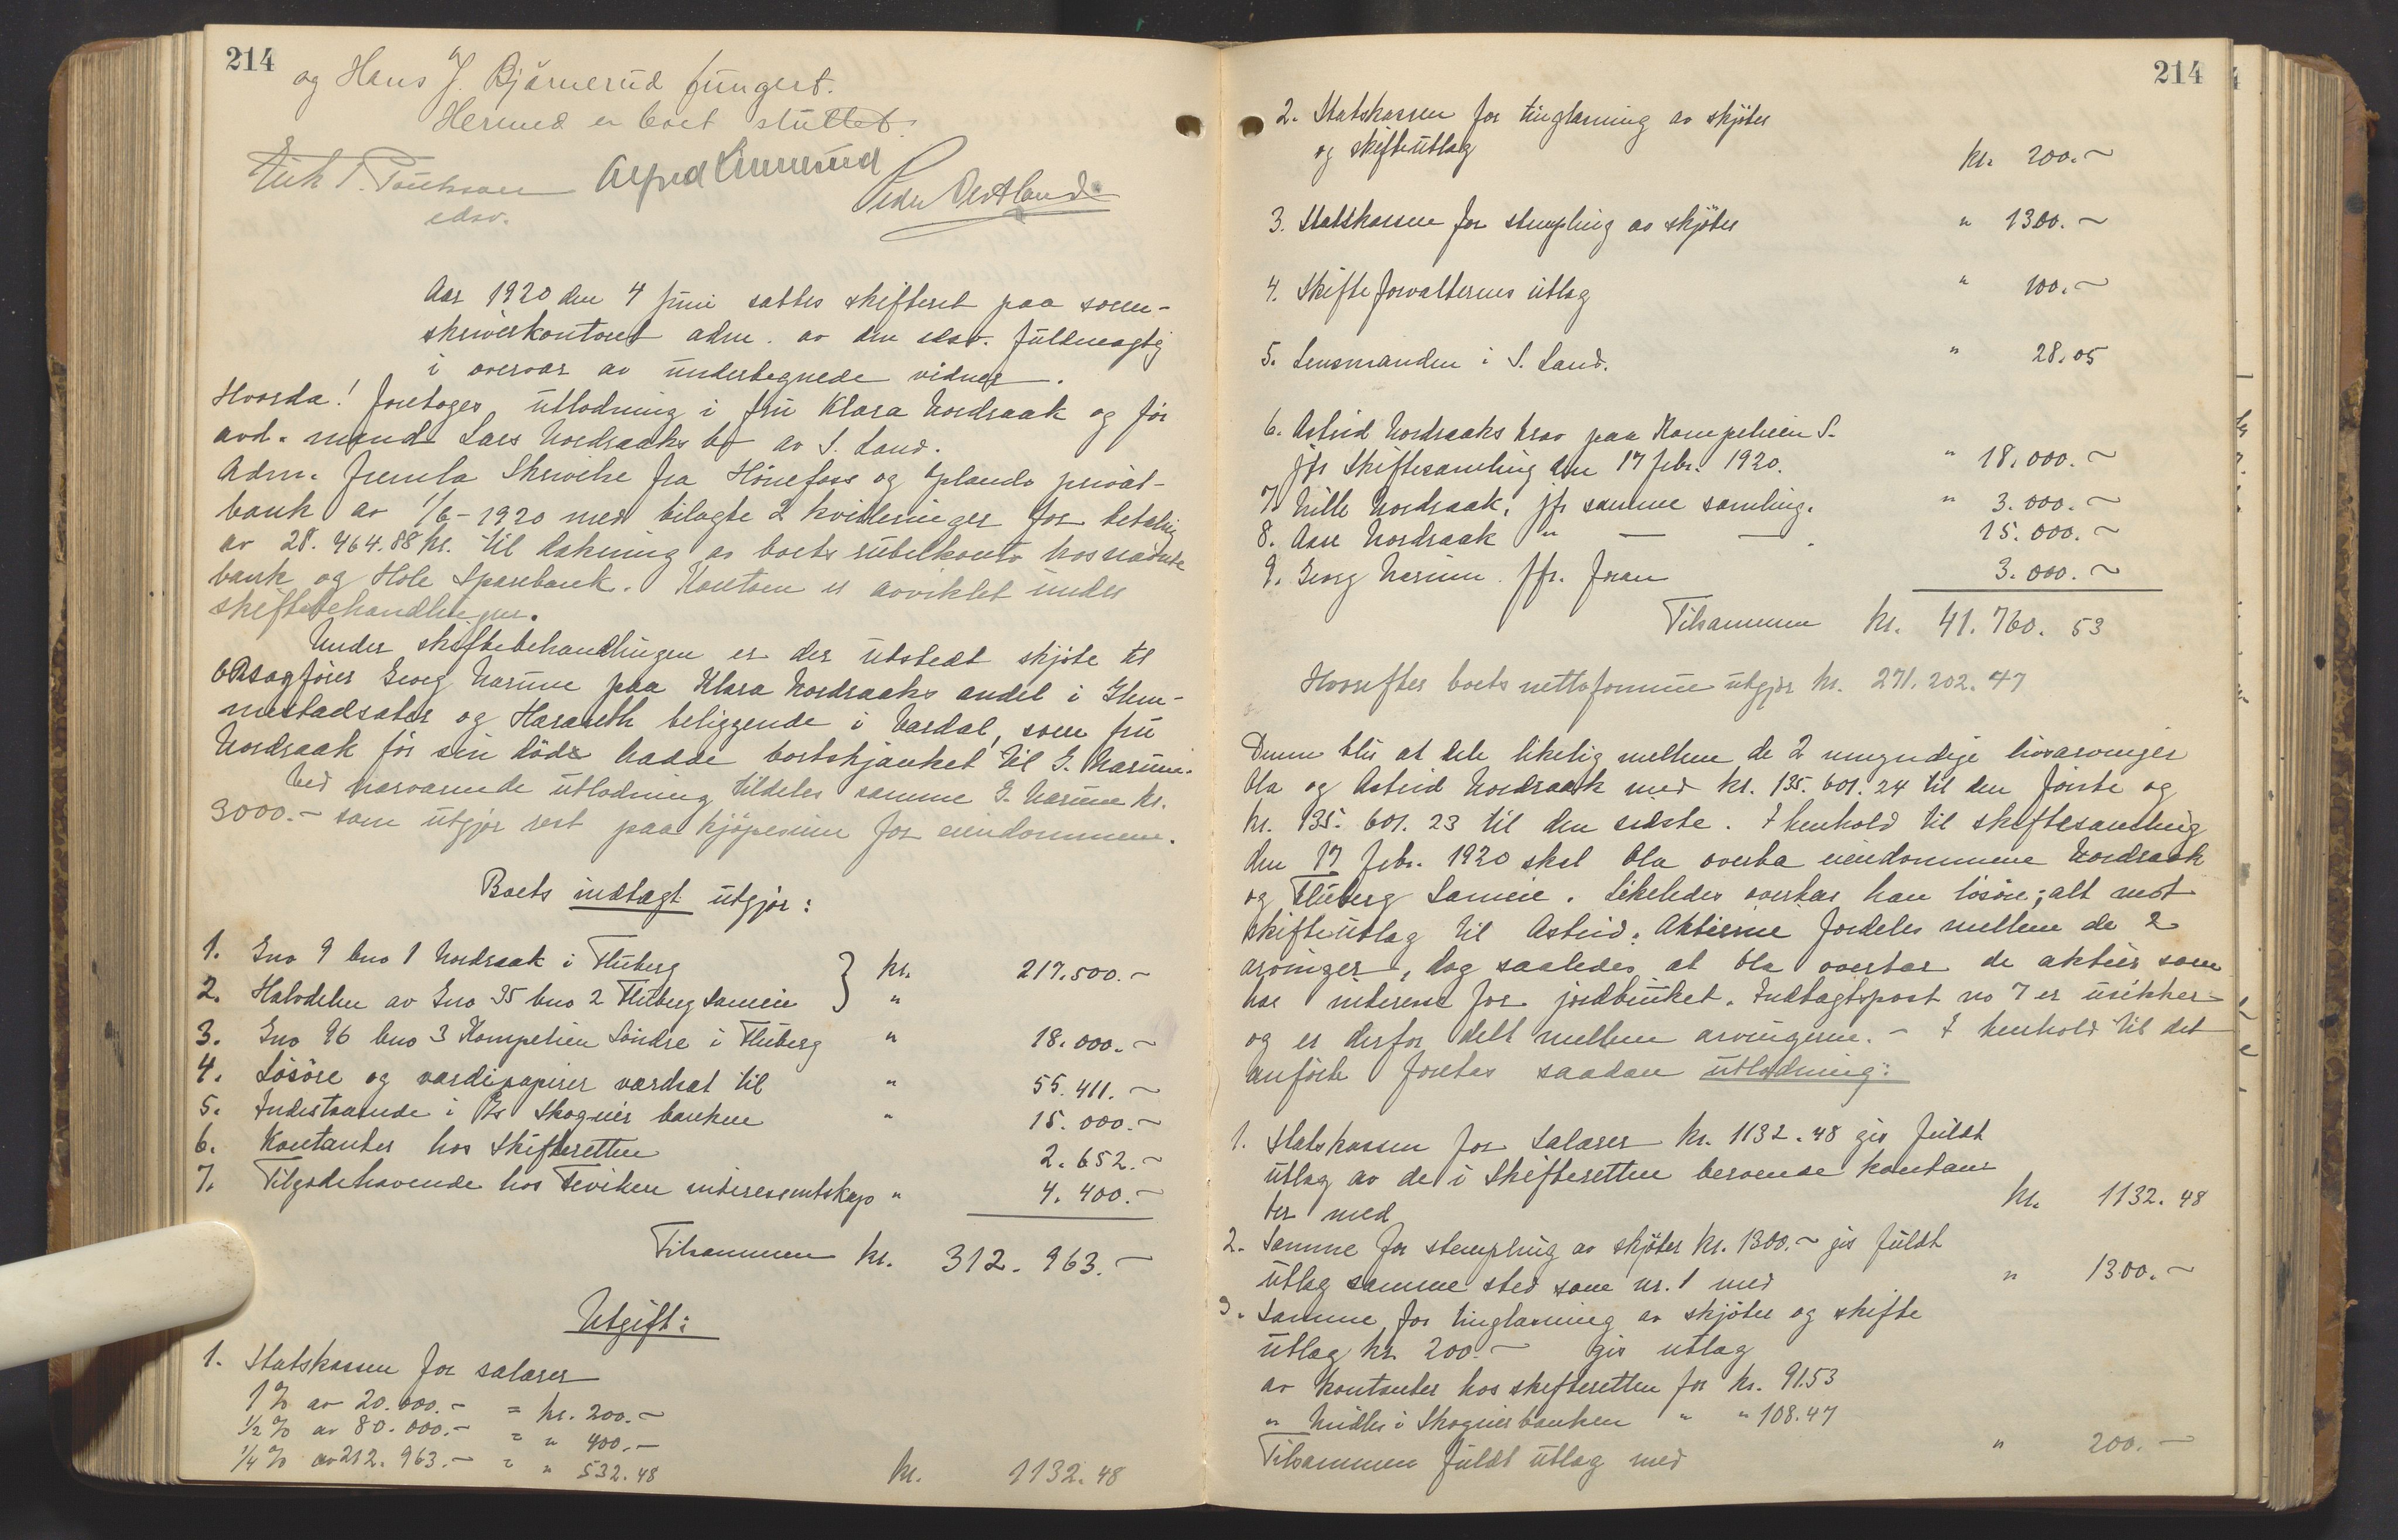 214
og Hans J. Bjørnerud fungert.
Hermed er boet sluttet.
Alfred
edsv.
Aar 1920 den 4 juni sattes skifteret paa soren-
skriverkontoret adm. av den edsv. fuldmægtig
i overvær av undertegnede vidner.
Hvorda! foretoges utlodning i fru Klara Nordraak og før
avd. mand Lars Nordraaks bo av S. Land.
Adm. fremla Skrivelse fra Hönefoss og Oplands privat-
bank av 1/6-1920 med bilagte 2 kvitteringer for betaling
av 28.464.88 kr. til dækning av boets rubelkonto hos nævnte
bank og Hole Sparebank. Kontoen er avviklet under
skiftebehandlingen.
Under skiftebehandlingen er der utstedt skjöte til
O.R.sagförer Georg Narum paa Klara Nordraaks andel i Glem-
mestadsæter og Harareth beliggende i Vardal, som fru
Nordraak för sin död hadde bortskjænket til G. Narum.
Ved nærværende utlodning tildeles samme G. Narum kr.
3000.- som utgjör rest paa kjöpesum for eiendommene.
Boets indtægt utgjör:
1. Gno 9 bno 1 Nordraak i Fluberg } kr. 217.500.-
2. Halvdelen av Gno 35 bno 2 Fluberg Sameie "
3. Gno 96 bno 3 Kompelien Söndre i Fluberg " 18.000.-
4. Lösöre og værdipapirer værdsat til " 55.411.-
5. Indestaaende i A/s Skogeier banken " 15.000.-
6. Kontanter hos Skifteretten 2.652.-
7. Tilgodehavende hos Feviken interessentskap " 4.400.-
Tilsammen kr. 312.963.-
Utgift:
1. Statskassen for salærer
1 % av 20.000.- = kr. 200.-
1/2 % av 80.000.- = " 400.-
1/4 % av 212.963.- = " 532.48 kr. 1132.48
214
2. Statskassen for tinglæsning av skjöter
og skifteutlæg kr. 200.-
3. Statskassen for stempling av skjöter " 1300.-
4. Skifteforvalterens utlæg " 100.-
5. Lensmanden i S. Land. " 28.05
6. Astrid Nordraaks krav paa Kompelien S.
jfr Skiftesamling den 17 febr. 1920. " 18.000.-
7. Nille Nordraak, jfr samme samling. " 3.000.-
8. Aase Nordraak " — — . 15.000.-
9. Georg Narum. Jfr. foran 3.000.-
Tilsammen kr. 41.760.53
Hvorefter boets nettoformue utgjör kr. 271.202.47
Denne blir at dele likelig mellem de 2 umyndige livsarvinger
Ola og Astrid Nordraak med kr. 135.601.24 til den förste og
kr. 135.601.23 til den sidste. I henhold til skiftesamling
den 17 febr. 1920 skal Ola overta eiendommene Nordraak
og Fluberg Sameie. Likeledes overtar han lösöre; alt mot
skifteutlæg til Astrid. Aktierne fordeles mellem de 2
arvinger, dog saaledes at Ola overtar de aktier som
har interesse for jordbruket. Indtægtspost no 7 er usikker
og er derfor delt mellem arvingerne. - I henhold til det
anförte foretas saadan utlodning:
1. Statskassen for Salærer kr. 1132.48 gis fuldt
utlæg av de i Skifteretten beroende kontan
ter med kr. 1132.48
2. Samme for stempling av skjöter kr. 1300.- gis fuldt
utlæg samme sted som nr. 1 med " 1300.-
3. Samme for tinglæsning av skjöter og skifte
utlæg kr. 200.- gis utlæg
av kontanter hos skifteretten for kr. 91.53
" midler i Skogeierbanken " " 108.47
Tilsammen fuldt utlæg med " 200.-